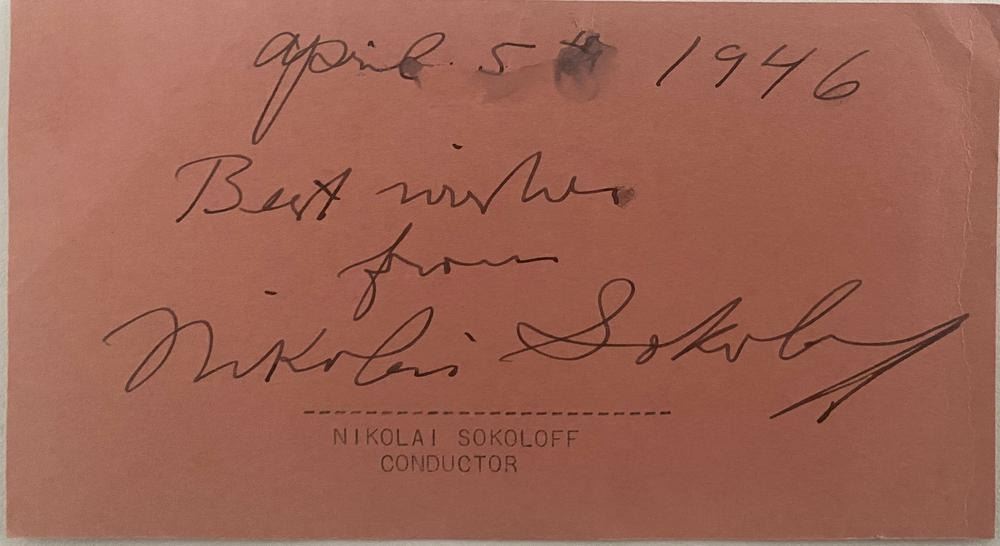 April 5th 1946
Best wishes
from
Nikolai Sokoloff
NIKOLAI SOKOLOFF
CONDUCTOR